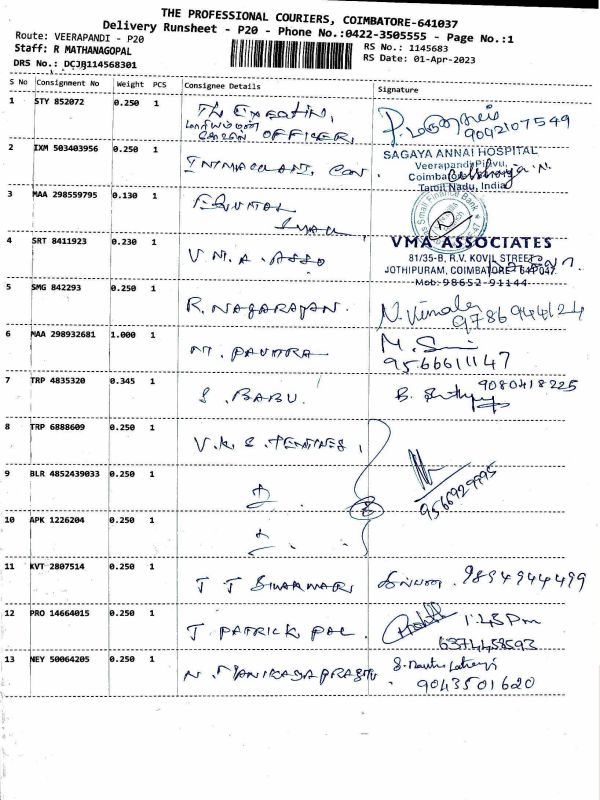 THE PROFESSIONAL COURIERS, COIMBATORE-641037
Delivery Runsheet - P20 - Phone No.:0422-3505555 - Page No.:1
Route: VEERAPANDI - P20
Staff: R MATHANAGOPAL
DRS No.: DCJB114568301
RS No.: 1145683
RS Date: 01-Apr-2023
S No Consignment No Weight PCS Consignee Details Signature
1 STY 852072 0.250 1
OFFICER,
9042107549
2 IXM 503403956 0.250 1
SAGAYA ANNAI HOSPITAL
Veerapandi Pirivu,
Coimbatore
Tamil Nadu, India
3 MAA 298559795 0.130 1
Small Finance Bank
4 SRT 8411923 0.230 1 V.M.A. ASSO
VMA ASSOCIATES
81/35-B, R.V. KOVIL STREET,
JOTHIPURAM, COIMBATORE - 641 047.
Mob: 98652-91144
5 SMG 842293 0.250 1 R. NAGARAJAN. N. Vimala
9786944124
6 MAA 298932681 1.000 1 M. PAVITRA
9566611147
7 TRP 4835320 0.345 1 S. BABU.
9080418225
8 TRP 6888609 0.250 1 V.K.S.
9 BLR 4852439033 0.250 1
10 APK 1226204 0.250 1
11 KVT 2807514 0.250 1 9894944499
12 PRO 14664015 0.250 1 J PATRICK PAL. 1:45 Pm
6374458593
13 NEY 50064205 0.250 1 N.
9043501620